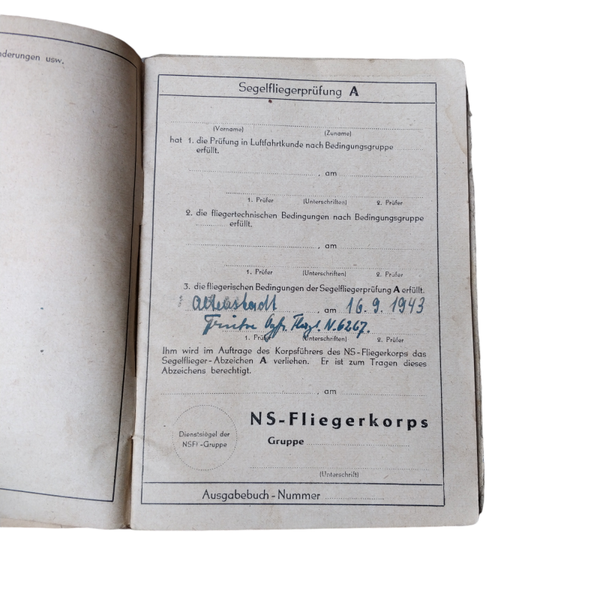 nderungen usw.
Segelfliegerprüfung A
(Vorname) (Zuname)
hat 1. die Prüfung in Luftfahrtkunde nach Bedingungsgruppe
erfüllt.
, am
1. Prüfer (Unterschriften) 2. Prüfer
2. die fliegertechnischen Bedingungen nach Bedingungsgruppe
erfüllt.
, am
1. Prüfer (Unterschriften) 2. Prüfer
3. die fliegerischen Bedingungen der Segelfliegerprüfung A erfüllt.
, am 16.9.1943
N.6267.
1. Prüfer (Unterschriften) 2. Prüfer
Ihm wird im Auftrage des Korpsführers des NS-Fliegerkorps das
Segelflieger-Abzeichen A verliehen. Er ist zum Tragen dieses
Abzeichens berechtigt.
, am
NS-Fliegerkorps
Dienstsiegel der
NSFK-Gruppe
Gruppe
(Unterschrift)
Ausgabebuch-Nummer